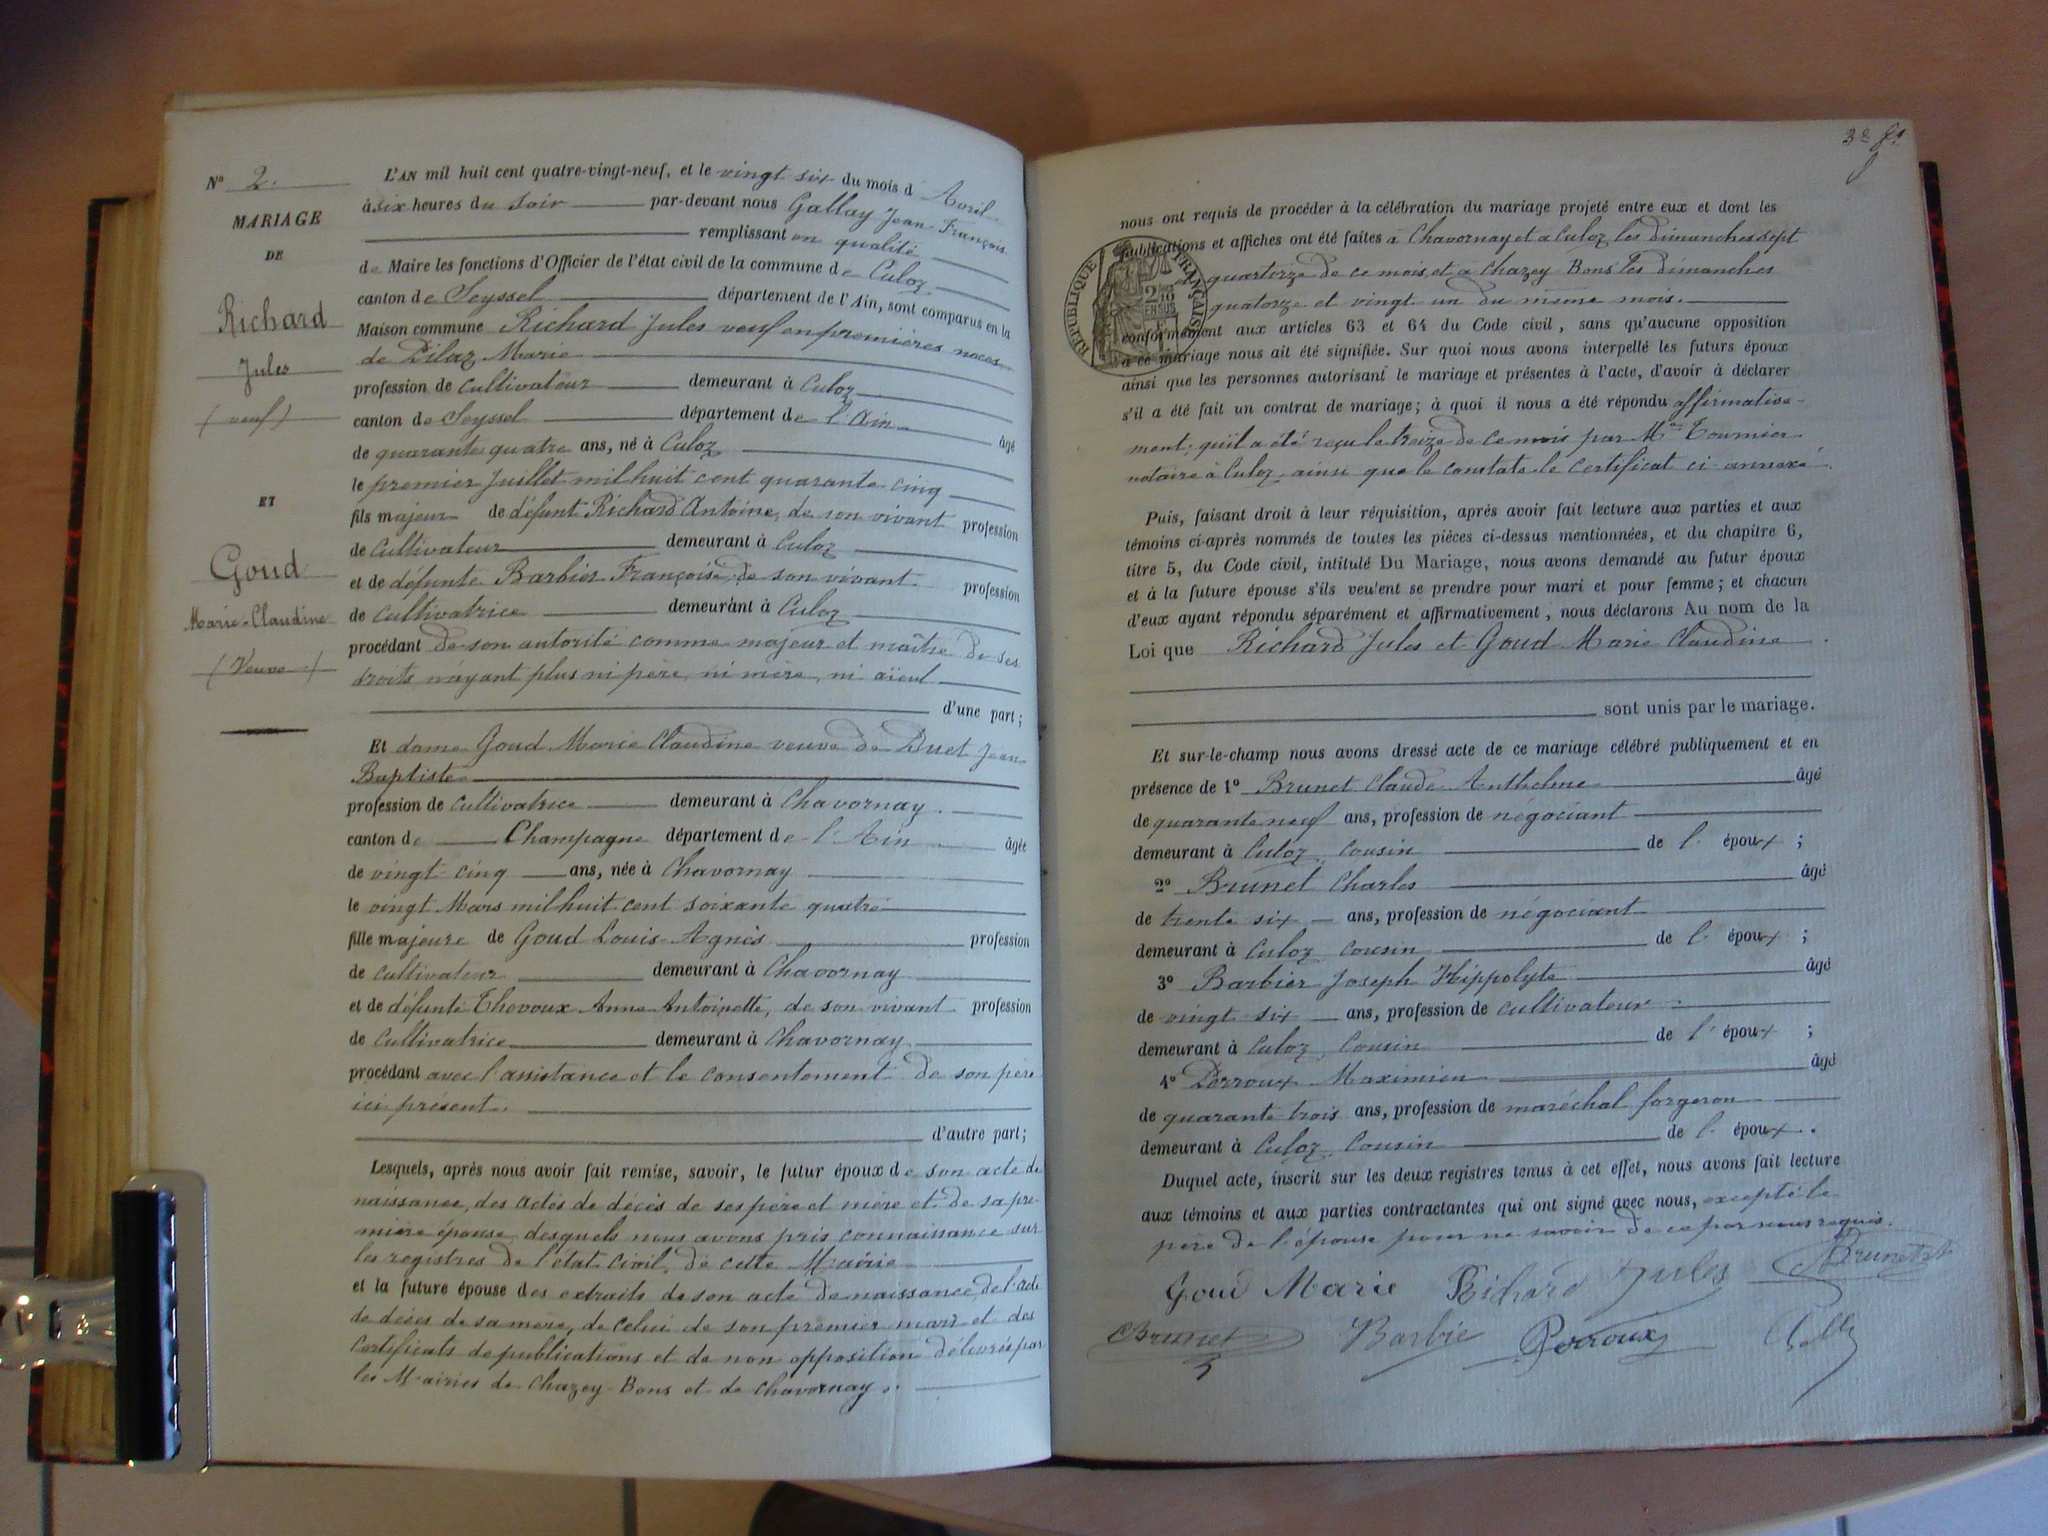 N° 2.
MARIAGE
DE
Richard
Jules
(veuf)
ET
Goud
Marie-Claudine
(Veuve)
L'AN mil huit cent quatre-vingt-neuf, et le vingt six du mois d'Avril
à six heures du soir par-devant nous Gallay Jean-François
remplissant en qualité
de Maire les fonctions d'Officier de l'état civil de la commune de Culoz
canton de Seyssel département de l'Ain, sont comparus en la
Maison commune Richard Jules veuf en premières noces
de Pilaz Marie
profession de cultivateur demeurant à Culoz
canton de Seyssel département de l'Ain âgé
de quarante quatre ans, né à Culoz
le premier Juillet mil huit cent quarante cinq
fils majeur de défunt Richard Antoine, de son vivant profession
de Cultivateur demeurant à Culoz
et de défunte Barbier Françoise, de son vivant profession
de cultivatrice demeurant à Culoz
procédant de son autorité comme majeur et maître de ses
droits n'ayant plus ni père, ni mère, ni aïeul
d'une part;
Et dame Goud Marie Claudine veuve de Duet Jean
Baptiste
profession de cultivatrice demeurant à Chavornay
canton de Champagne département de l'Ain âgée
de vingt-cinq ans, née à Chavornay
le vingt Mars mil huit cent soixante quatre
fille majeure de Goud Louis-Agnès profession
de cultivateur demeurant à Chavornay
et de défunte Thevoux Anne Antoinette, de son vivant profession
de Cultivatrice demeurant à Chavornay
procédant avec l'assistance et le consentement de son père
ici présent.
d'autre part;
Lesquels, après nous avoir fait remise, savoir, le futur époux de son acte de
naissance, des actes de décès de ses père et mère et de sa pre-
mière épouse desquels nous avons pris connaissance sur
les registres de l'état civil, de cette Mairie
et la future épouse des extraits de son acte de naissance, de l'acte
de décès de sa mère, de celui de son premier mari et des
certificats de publications et de non opposition délivrés par
les Mairies de Chazey-Bons et de Chavornay.
3e
nous ont requis de procéder à la célébration du mariage projeté entre eux et dont les
publications et affiches ont été faites à Chavornay et à Culoz les dimanches sept
et quartorze de ce mois, et à Chazey Bons les dimanches
quatorze et vingt un du même mois.
RÉPUBLIQUE FRANÇAISE
conformément aux articles 63 et 64 du Code civil, sans qu'aucune opposition
à ce mariage nous ait été signifiée. Sur quoi nous avons interpellé les futurs époux
ainsi que les personnes autorisant le mariage et présentes à l'acte, d'avoir à déclarer
s'il a été fait un contrat de mariage; à quoi il nous a été répondu affirmative-
ment, qu'il a été reçu le treize de ce mois par Me Tournier
notaire à Culoz, ainsi que le constate le certificat ci-annexé.
Puis, faisant droit à leur réquisition, après avoir fait lecture aux parties et aux
témoins ci-après nommés de toutes les pièces ci-dessus mentionnées, et du chapitre 6,
titre 5, du Code civil, intitulé Du Mariage, nous avons demandé au futur époux
et à la future épouse s'ils veulent se prendre pour mari et pour femme; et chacun
d'eux ayant répondu séparément et affirmativement, nous déclarons Au nom de la
Loi que Richard Jules et Goud Marie Claudine
sont unis par le mariage.
Et sur-le-champ nous avons dressé acte de ce mariage célébré publiquement et en
présence de 1° Brunet Claude Anthelme âgé
de quarante neuf ans, profession de négociant
demeurant à Culoz, cousin de l'époux;
2° Brunet Charles âgé
de trente six ans, profession de négociant
demeurant à Culoz cousin de l'époux;
3° Barbier Joseph Hippolyte âgé
de vingt six ans, profession de cultivateur
demeurant à Culoz, cousin de l'époux;
4° Perroux Maximien âgé
de quarante trois ans, profession de maréchal forgeron
demeurant à Culoz, cousin de l'époux.
Duquel acte, inscrit sur les deux registres tenus à cet effet, nous avons fait lecture
aux témoins et aux parties contractantes qui ont signé avec nous, excepté le
père de l'épouse pour ne savoir de ce par nous requis.
Goud Marie Richard Jules Brunet
CBrunet Barbie Perroux